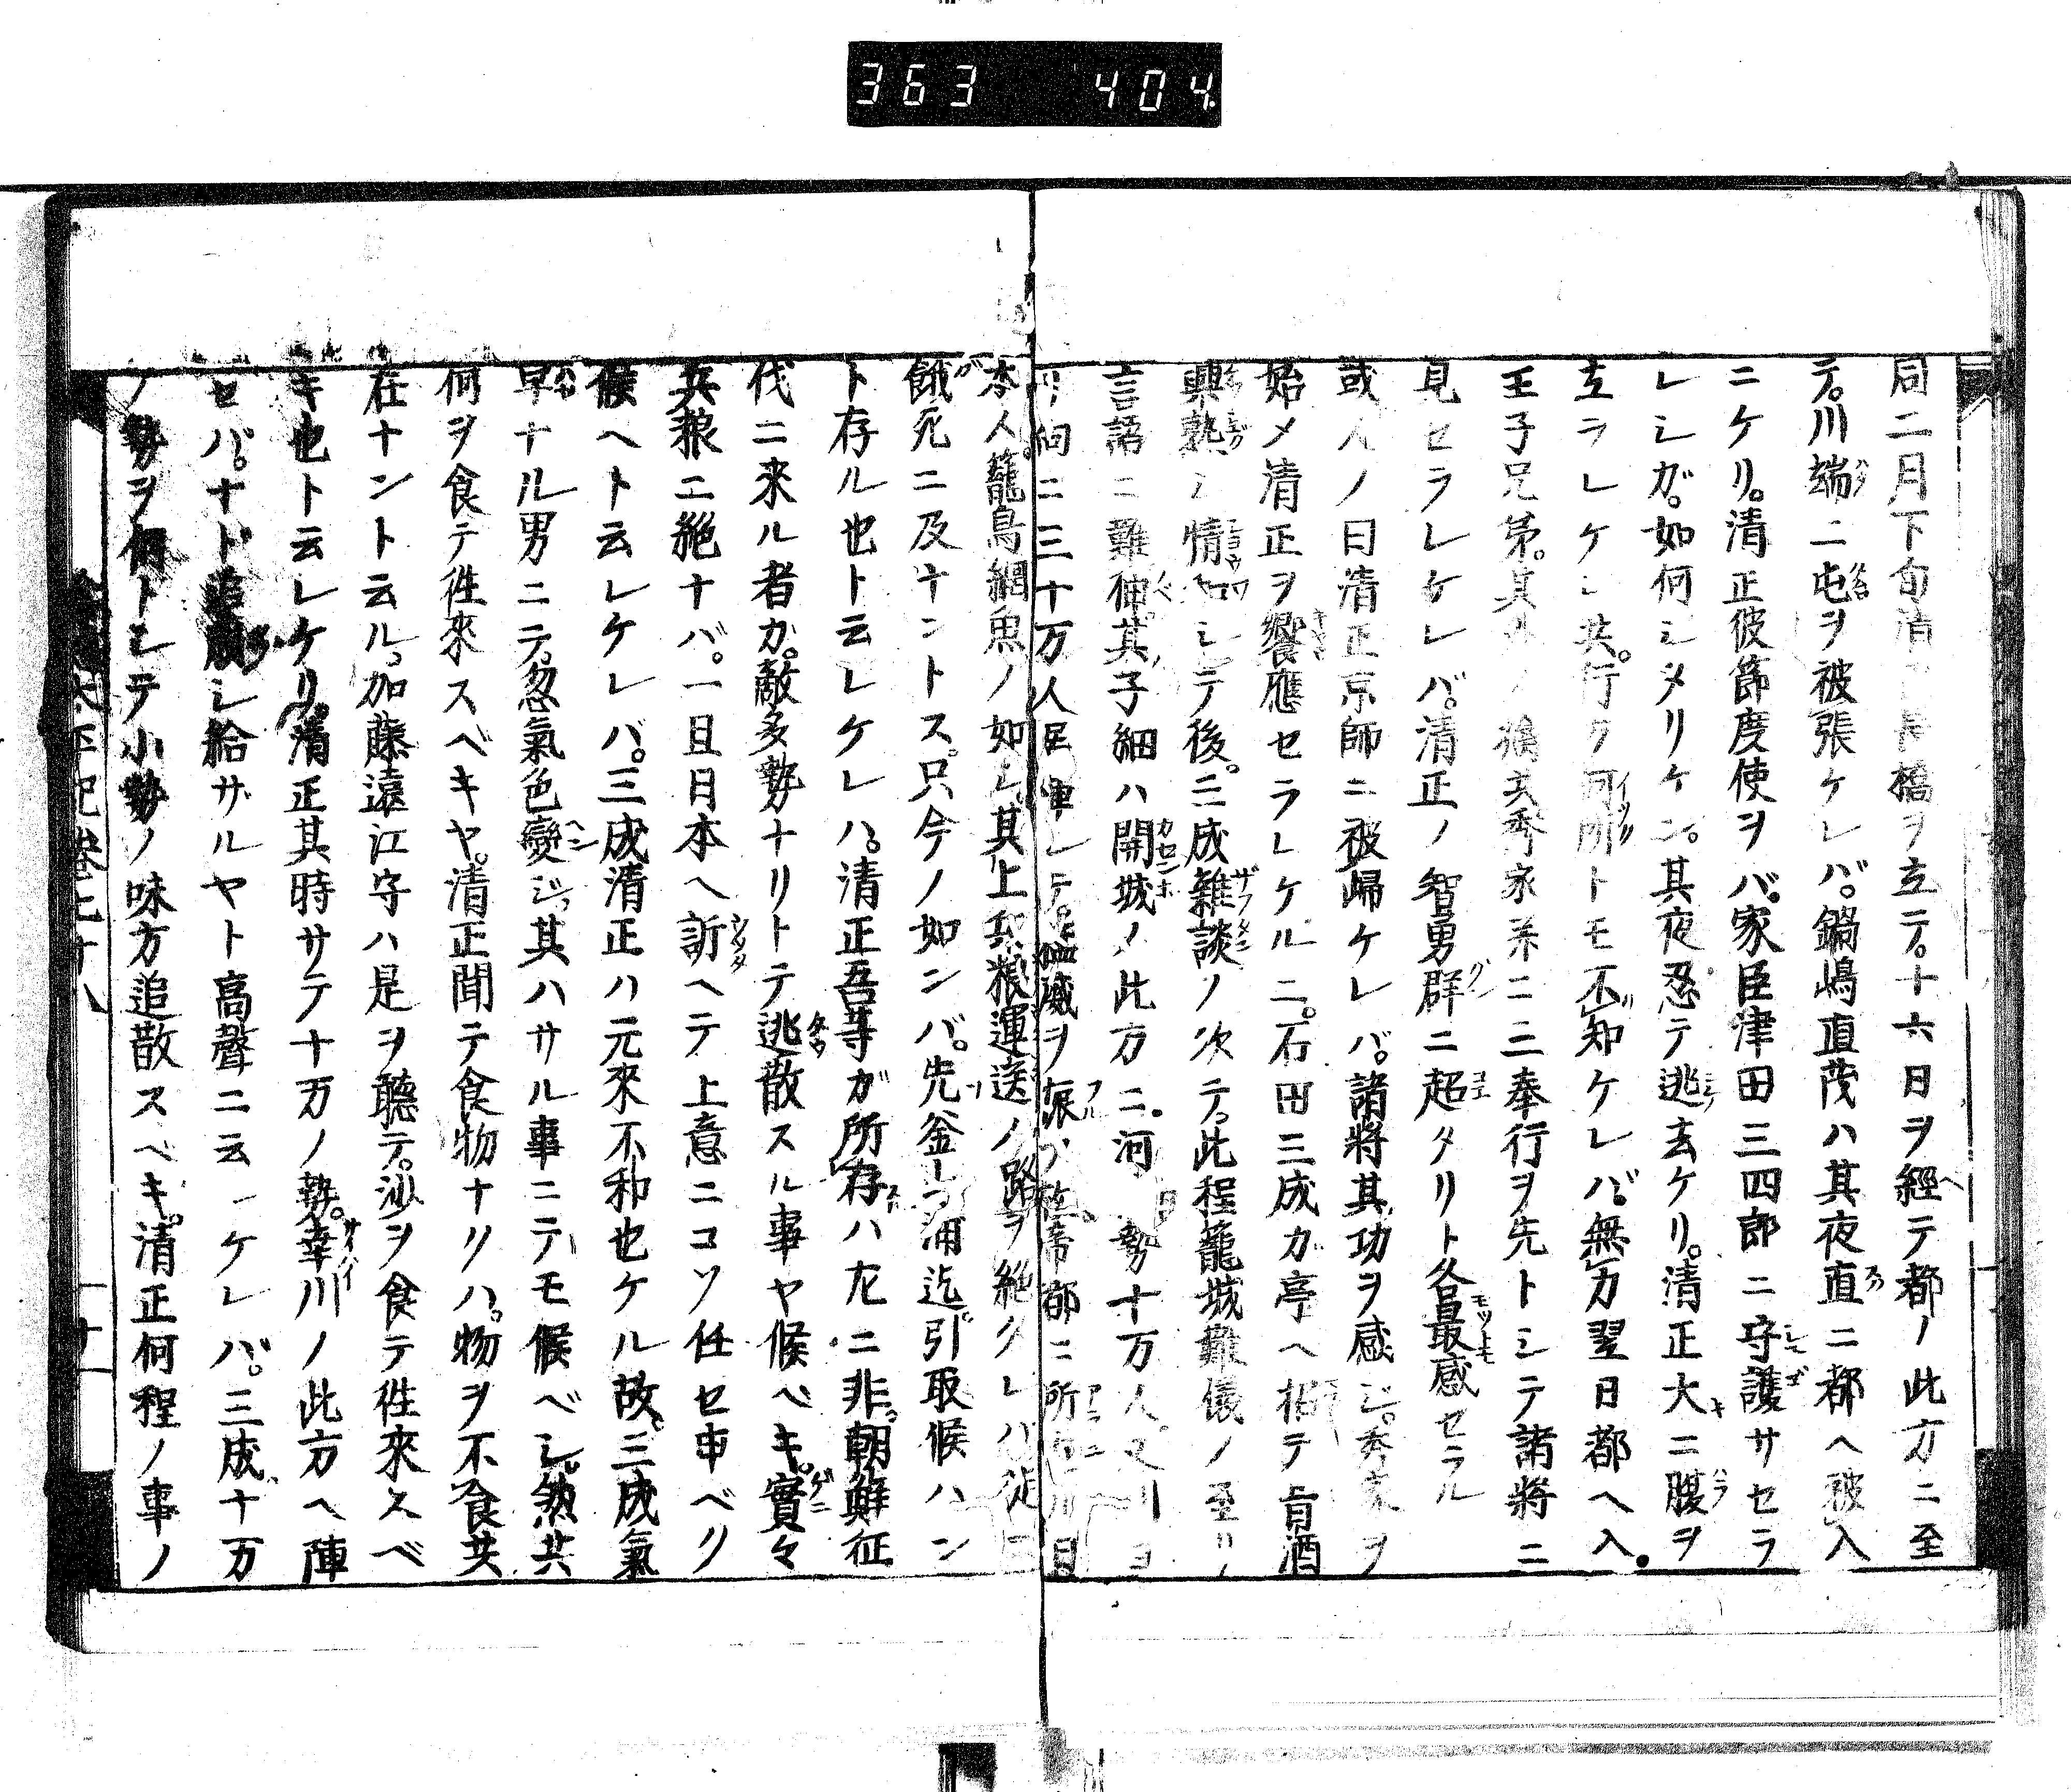 363 404
同二月下旬清正長橋ヲ立テ。十六日ヲ經テ都ノ此方ニ至
テ。川端ニ屯ヲ被張ケレバ。鍋嶋直茂ハ其夜直ニ都ヘ被入
ニケリ。清正彼節度使ヲバ。家臣津田三四郎ニ守護サセラ
レシガ。如何シメリケン。其夜忍テ逃玄ケリ。清正大ニ腹ヲ
立ラレケレ共。行ク何所トモ不知ケレバ。無力翌日都ヘ入。
王子兄弟。其外ノ擒共秀家并ニ三奉行ヲ先トシテ諸將ニ
見セラレケレバ。清正ノ智勇群ニ超タリト各最感セラル
或人ノ曰清正京師ニ被歸ケレバ。諸將其功ヲ感ジ。秀家ヲ
始メ清正ヲ饗應セラレケルニ。石田三成カ亭ヘ招テ旨酒
興熟シ情和シテ後。三成雜談ノ次テ。此程籠城難儀ノ至リ
言語ニ難伸。其子細ハ開城ノ此方ニ。河 勢十万人。又川ヨ
リ向ニ三十万人屯シテ。猛威ヲ振ヒ。帝都ニ所 日
本人。籠鳥網魚ノ如シ。其上兵粮運送ノ路ヲ絶クレバ徒ニ
餓死ニ及ナントス。只今ノ如ンバ。先釜山浦迄引取候ハン
ト存ル也ト云レケレハ。清正吾等ガ所存ハ左ニ非。朝鮮征
伐ニ來ル者カ。敵多勢ナリトテ逃散スル事ヤ候ベキ。實々
兵粮ニ絶ナバ。一旦日本ヘ訴ヘテ上意ニコソ任セ申ベク
候ヘト云レケレバ。三成清正ハ元來不和也ケル故。三成氣
早ナル男ニテ。忽氣色變ジ。其ハサル事ニテモ候ベシ。然共
何ヲ食テ徃來スベキヤ。清正聞テ食物ナクハ。物ヲ不食共
在ナント云ル。加藤遠江守ハ是ヲ聽テ。沙ヲ食テ徃來スベ
キ也ト云レケリ。清正其時サテ十万ノ勢。幸川ノ此方ヘ陣
セバ。ナド追散シ給サルヤト高聲ニ云ーケレバ。三成十万
ノ勢ヲ何トシテ小勢ノ味方追散スベキ。清正何程ノ事ノ
太平記卷二十八